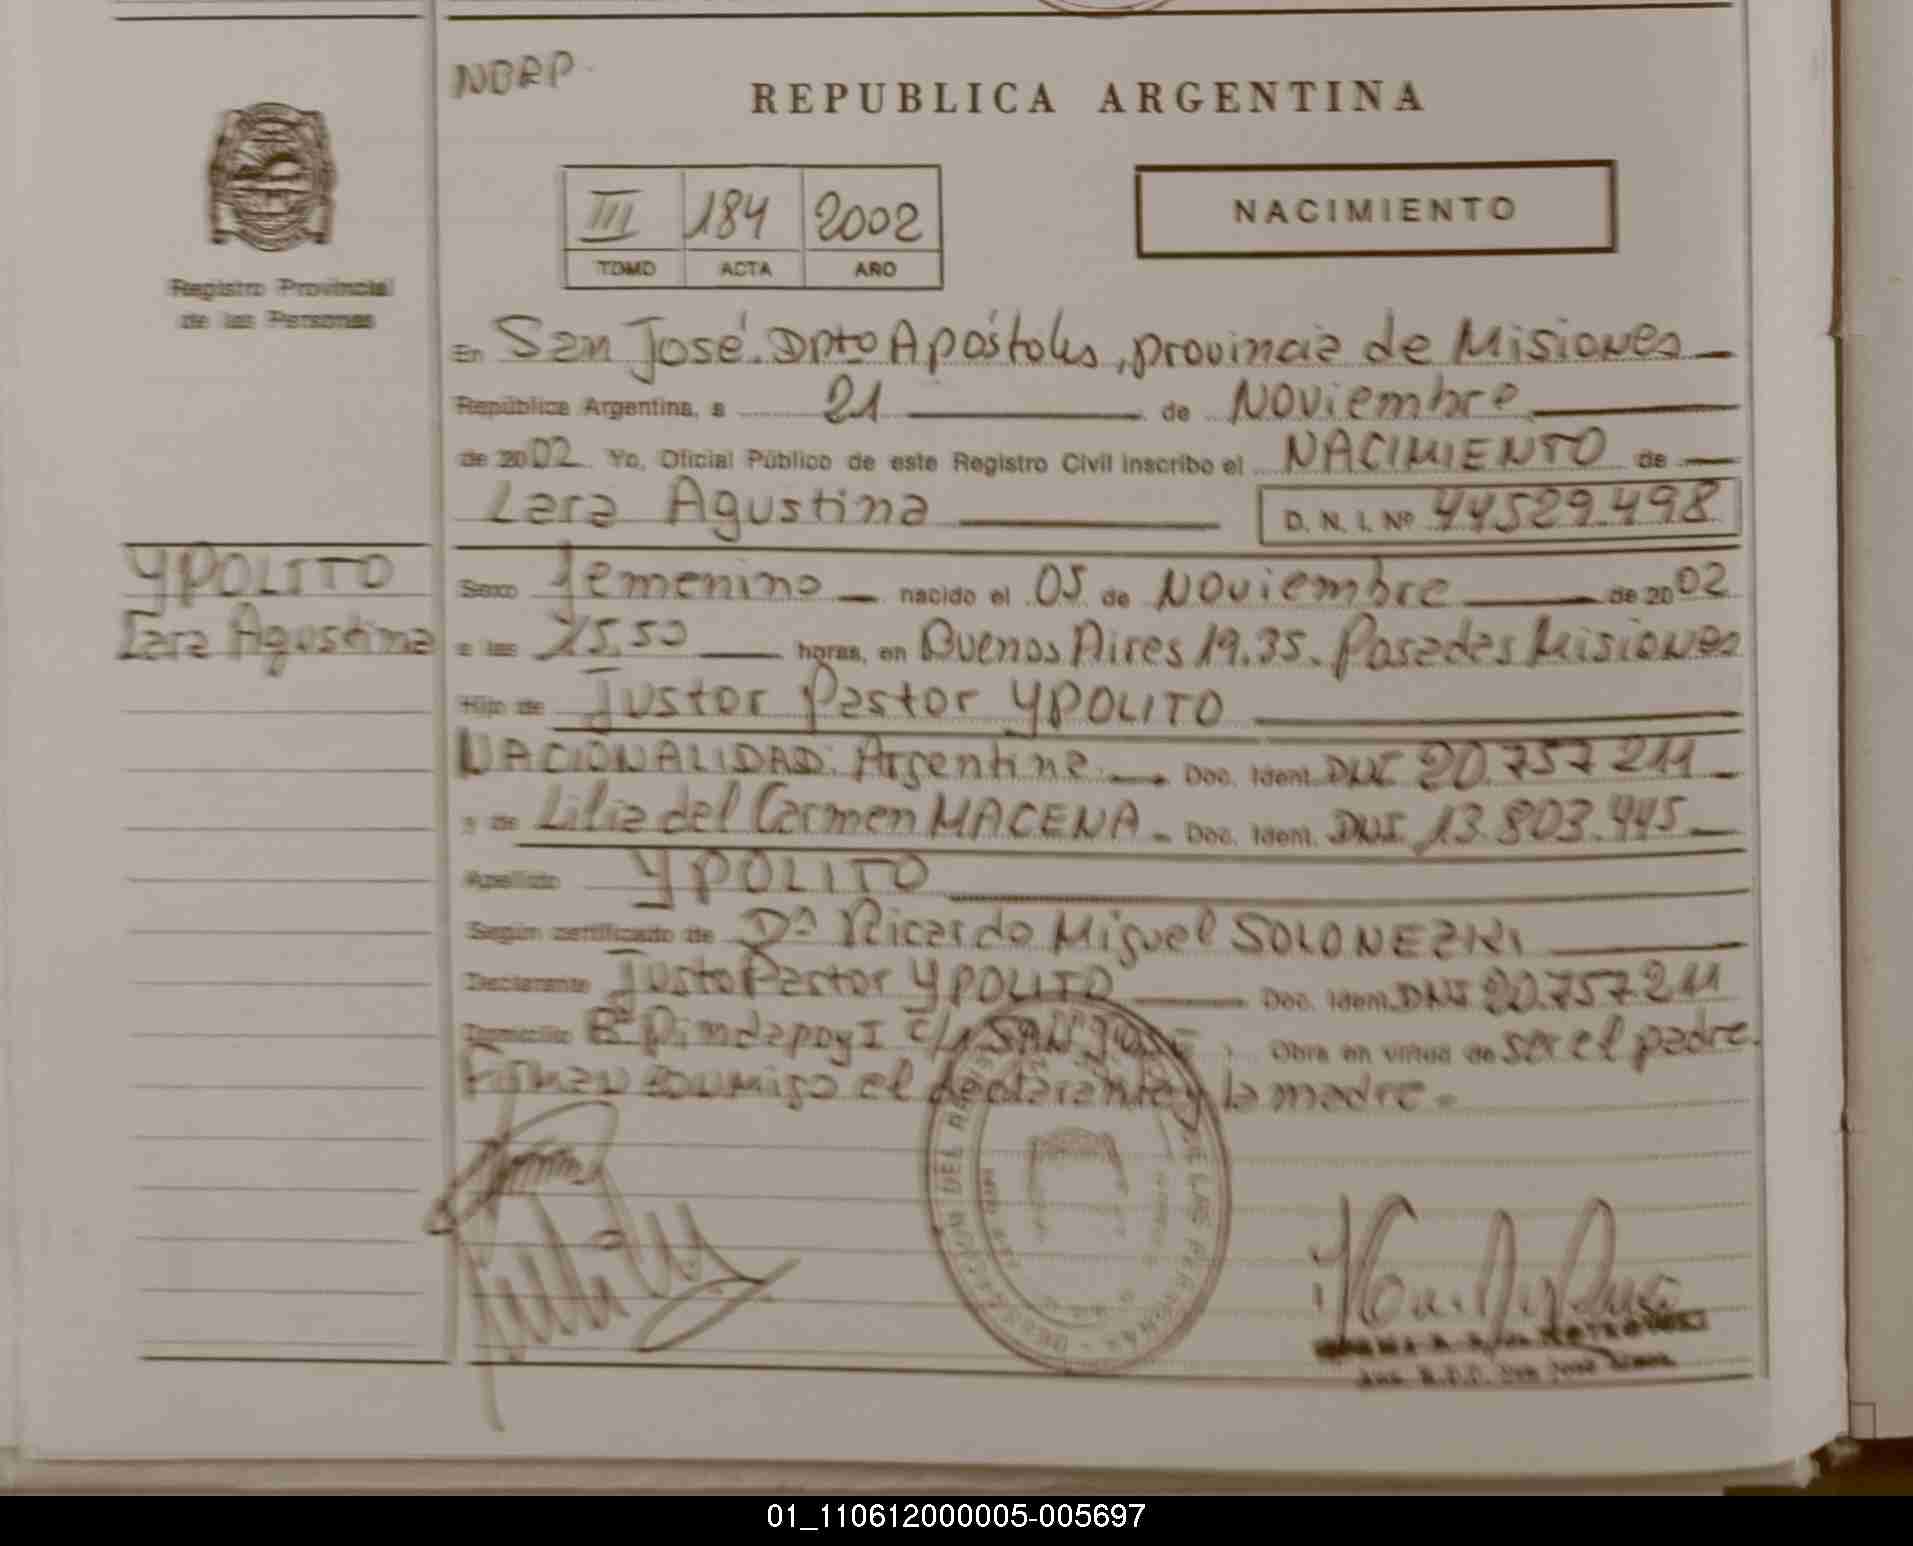 NBRP
REPUBLICA ARGENTINA
III 184 2002
TOMO ACTA AÑO
NACIMIENTO
Registro Provincial
de las Personas
En San José. Dpto Apóstoles, provincia de Misiones
República Argentina, a 21 de Noviembre
de 2002 Yo, Oficial Público de este Registro Civil inscribo el NACIMIENTO de
Lara Agustina D. N. I. Nº 44529.498
YPOLITO
Lara Agustina
Sexo femenino nacido el 05 de Noviembre de 2002
a las 15.50 horas, en Buenos Aires 19.35. Posadas Misiones
Hijo de Justor Pastor YPOLITO
NACIONALIDAD: Argentina. Doc. Ident. DNI 20.757 211
y de Lilia del Carmen MACENA. Doc. Ident. DNI 13.803.445
Apellido YPOLITO
Según certificado de Dº Ricardo Miguel SOLONEZKI
Declarante Justo Pastor YPOLITO Doc. Ident. DNI 20.757211
Domicilio Bº Pindapoy I C/1 SAN José Obra en virtud de ser el padre.
Firman conmigo el declarante y la madre.
DEL DE LAS PERSONAS
01_110612000005-005697